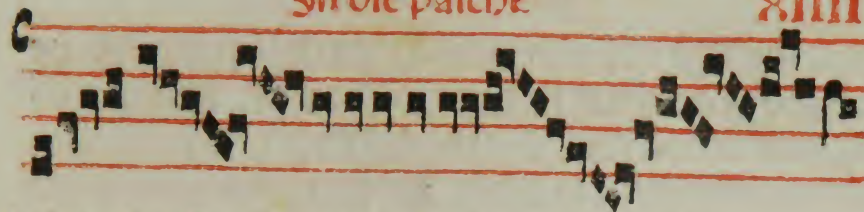 In die pasche xiiii